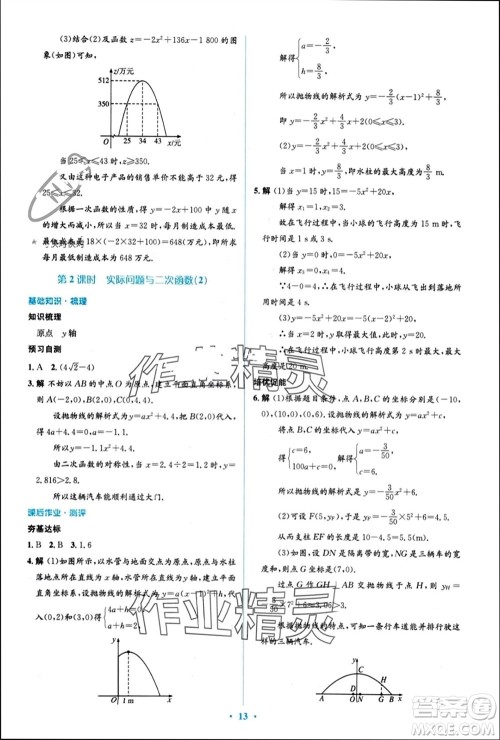 (3)结合(2)及函数 z=-2x²+136x-1 800 的图
象(如图)可知,
z/万元
512
350
O
25 34 43 x/元
当 25≤x≤43 时,z≥350.
又由这种电子产品的销售单价不能高于 32 元,得
25≤x≤32.
根据一次函数的性质,得
最低制造成本是 18×(-2×32+100)=648(万元),即
每月最低制造成本为 648 万元.
第 2 课时 实际问题与二次函数(2)
基础知识·梳理
知识梳理
原点 y轴
预习自测
1. A 2. (4√2-4)
3. 解 不妨以 AB 的中点 O 为原点,建立坐标系,则
A(-2,0),B(2,0),C(0,4.4).
设抛物线的解析式为 y=ax²+4.4,将 B(2,0)代入,
得 a=-1.1.
所以 y=-1.1x²+4.4.
由二次函数的对称性,当 x=2.4÷2=1.2 时,y=
2.816>2.8.
所以这辆汽车能顺利通过大门.
课后作业·测评
夯基达标
1. B 2. B 3. 1.6
4. 解 (1)如图,以水管与地面交点为原点,原点与水柱
落地点所在直线为 x 轴,水管所在直线为 y 轴,建立平
面直角坐标系,设抛物线的解析式为 y=a(x-1)²+h,
代入(0,2)和(3,0)得 {4a+h=0,
a+h=2,
y
O 1 m x
解得 {a=-2/3,
h=8/3.
所以抛物线的解析式为 y=-2/3(x-1)²+8/3,
即 y=-2/3x²+4/3x+2(0≤x≤3).
(2)y=-2/3x²+4/3x+2(0≤x≤3),
当 x=1 时,y=8/3,即水柱的最大高度为 8/3 m.
5. 解 (1)当 y=15 时,15=-5x²+20x,
解得 x₁=1,x₂=3.
故在飞行过程中,当小球的飞行高度为 15 m 时,飞行
时间为 1 s 或 3 s.
(2)当 y=0 时,0=-5x²+20x,
解得 x₁=0,x₂=4.
∵4-0=4,
∴在飞行过程中,小球从飞出到落地所用时间是 4 s.
高度是 20 m.
培优促能
6. 解 (1)根据题目条件,A,B,C 的坐标分别是(-10,
0),(10,0),(0,6).
设抛物线的解析式为 y=ax²+c,
将 B,C 的坐标代入 y=ax²+c,
解得 a=-3/50,
所以抛物线的解析式是 y=-3/50x²+6.
(2)可设 F(5,y_F),于是 y_F=-3/50×5²+6=4.5.
从而支柱 EF 的长度是 10-4.5=5.5(m).
(3)设 DN 是隔离带的宽,NG 是三辆车的宽度和,
则点 G 的坐标是(7,0).
过点 G 作 GH⊥AB 交抛物线于点 H,则 y_H=
×7²+6=3.06>3.
根据抛物线的特点,可知一条行车道能并排行驶这样
的三辆汽车.
y
C
H
A D O N G B x
作业精灵
作业精灵
答案圈
MXQE.COM
13